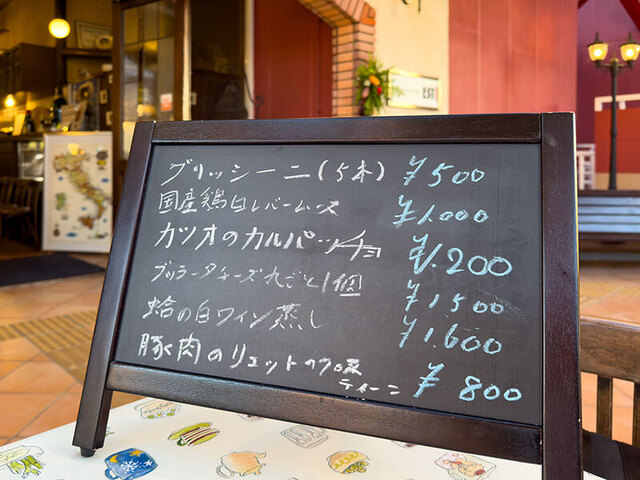 ブリッシーニ(5本) ¥500
国産鶏白レバームース ¥1.000
カツオのカルパッチョ ¥1.200
ブッラータチーズ丸ごと1個 ¥1500
蛤の白ワイン蒸し ¥1.600
豚肉のリエットの
ティーニ ¥800